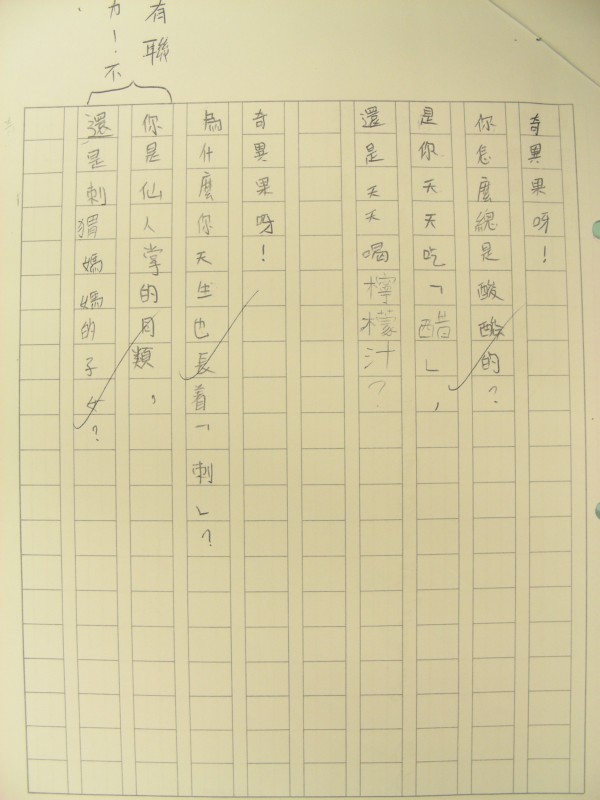 奇異果呀！
你怎麼總是酸酸的？
是你天天吃「醋」，
還是天天喝檸檬汁？
奇異果呀！
為什麼你天生也長着「刺」？
你是仙人掌的同類，
還是刺猬媽媽的子女？
有聯
力！不